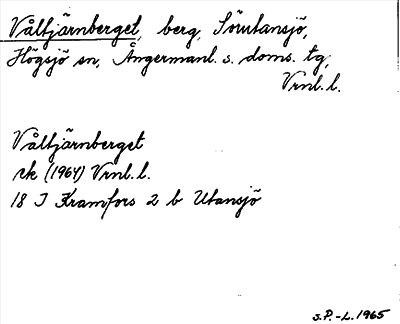 Våltjärnberget, berg, Sörutansjö,
Högsjö sn, Ångermanl. s. doms. tg,
Vrnl. l.
Våltjärnberget
rk (1964) Vrnl. l.
18 I Kramfors 2 b Utansjö
J.P.-L. 1965